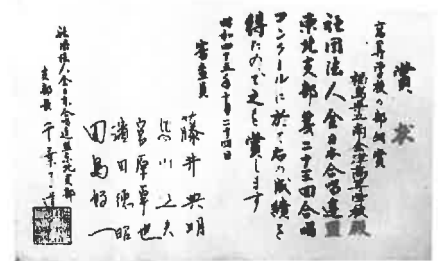 賞
高等学校の部 銅賞
福島県立南会津高等学校 殿
社団法人全日本合唱連盟
東北支部第二十三回合唱
コンクールに於て右の成績を
得たので之を賞します
昭和四十五年十月二十四日
審査員
藤井典明
宮原卓也
濱田徳昭
田島好一
社団法人全日本合唱連盟東北支部
支部長 千葉